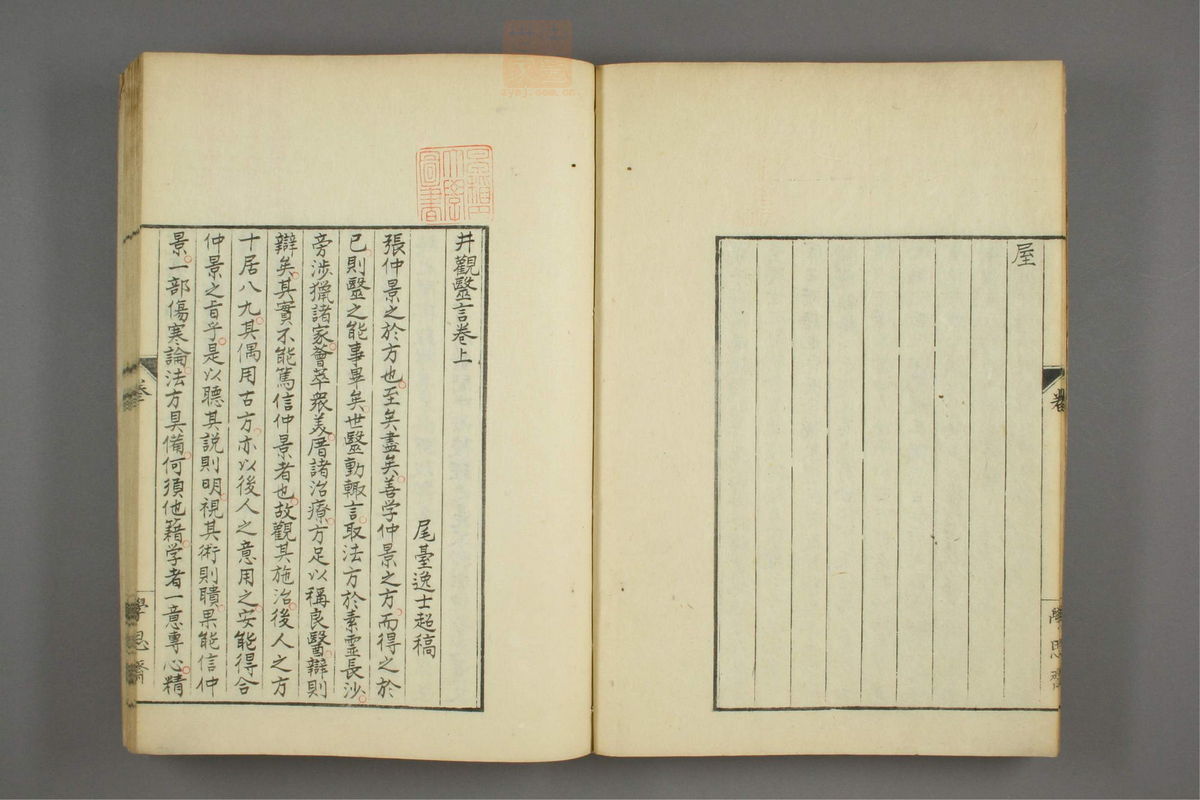 屋
井觀醫言卷上
尾臺逸士超稿
張仲景之於方也。至矣盡矣。善学仲景之方、而得之於
已。則毉之能事畢矣。世毉動輒言。取法方於素靈長沙。
旁涉獵諸家。薈萃衆美。厝諸治療。方足以稱良醫。辯則
辯矣。其實不能篤信仲景者也。故觀其施治。後人之方
十居八九。其偶用古方。亦以後人之意用之。安能得合
仲景之旨乎。是以聽其説則明。視其術則聵。果能信仲
景。一部傷寒論。法方具備。何須他籍。学者一意專心。精
學思齋
學思齋